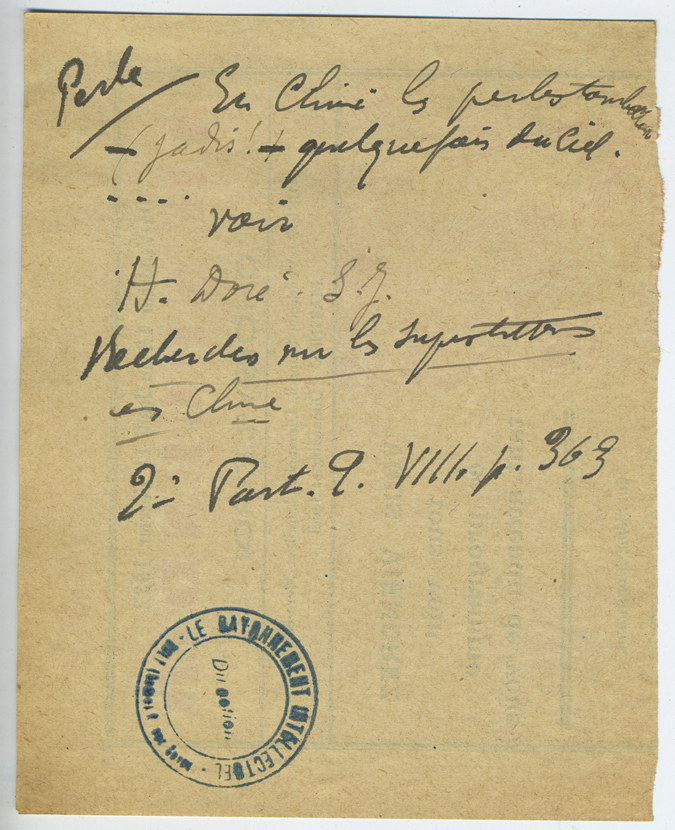 Perle
En Chine les perles tombaient
+ (jadis!) + quelquefois du Ciel.
....
voir
H. Doré. S.J.
Recherches sur les superstitions
en Chine
2e Part. T. VIII. p. 363
LE RAYONNEMENT INTELLECTUEL
Direction